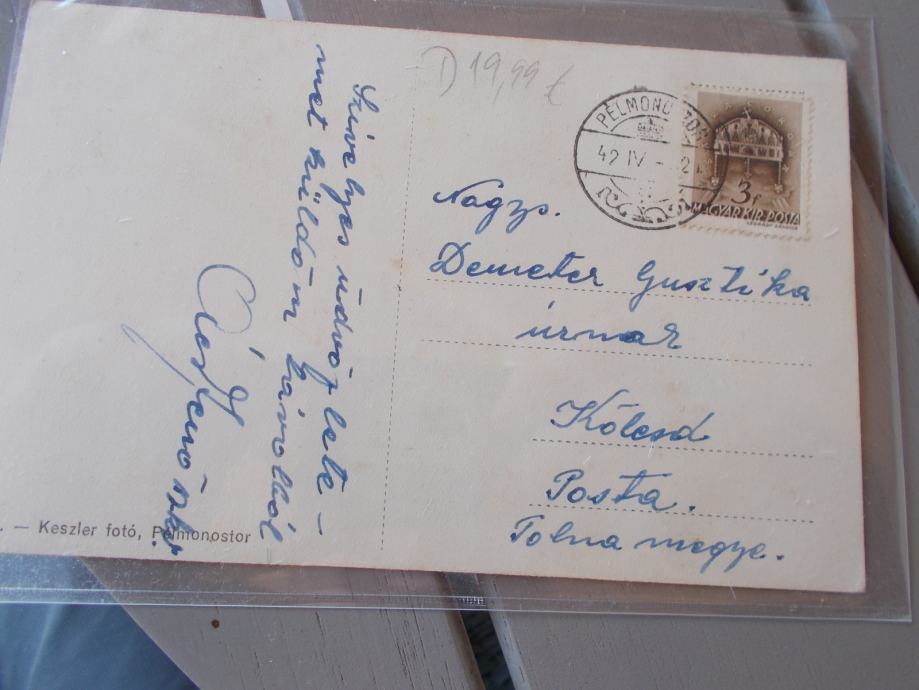 D 19,99 €
PÉLMONOSTOR
42 IV
3f
MAGYAR KIR. POSTA
Nagys.
Demeter Gusztika
úrnak
Kölesd
Posta.
Tolna megye.
Szívelyes üdvözlete-
met küldöm
— Keszler fotó, Pélmonostor